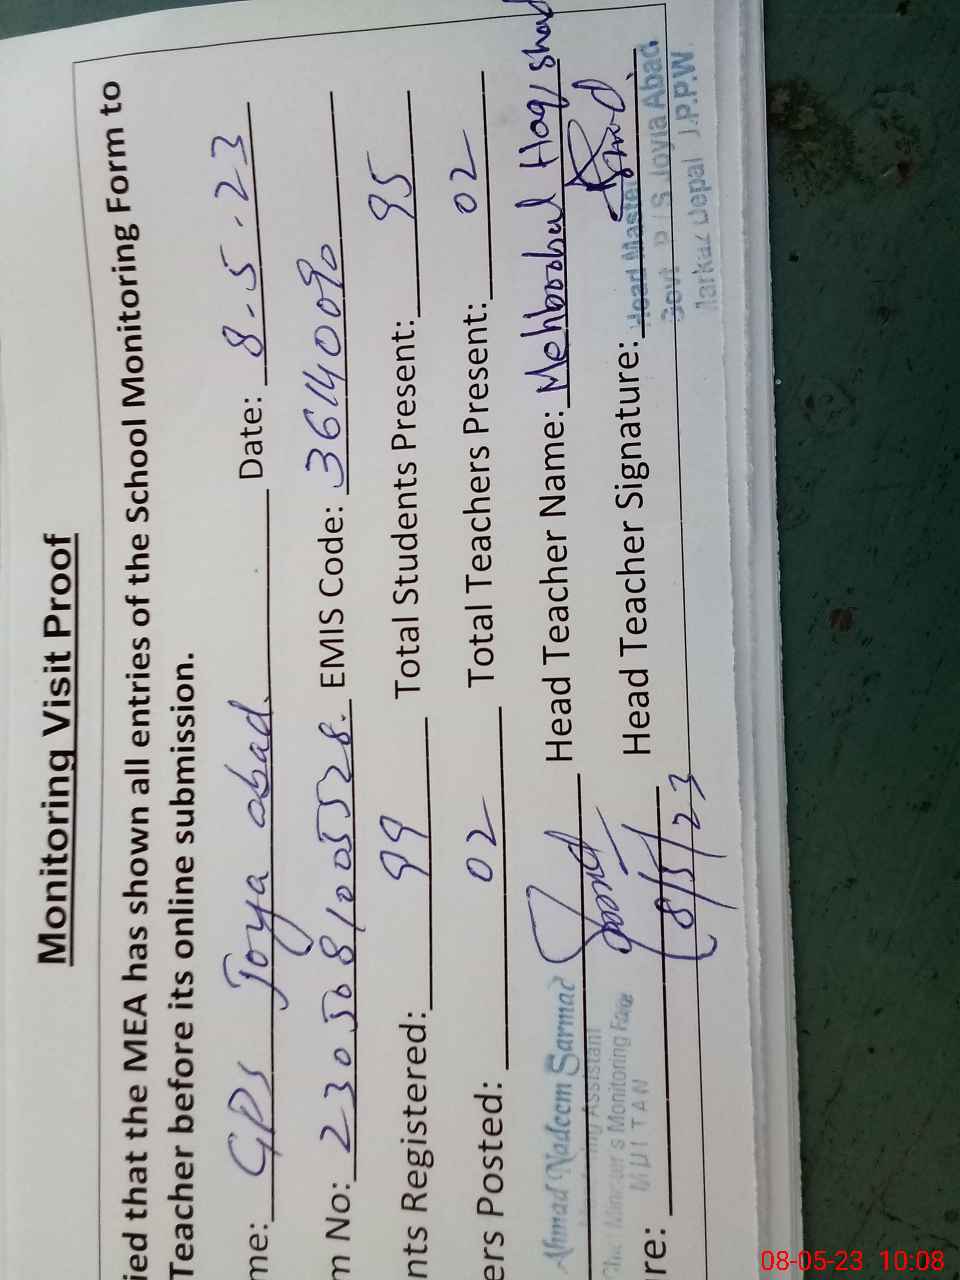 Monitoring Visit Proof
ied that the MEA has shown all entries of the School Monitoring Form to
Teacher before its online submission.
me: GPS Joya abad Date: 8-5-23
m No: 230508/005528. EMIS Code: 36140090
nts Registered: 99 Total Students Present: 95
ers Posted: 02 Total Teachers Present: 02
Ahmad Nadeem Sarmad Head Teacher Name: Mehboobul Haq, shad
Assistant
Minister's Monitoring Force
MULTAN
re: 8/5/23 Head Teacher Signature:
Head Master
Govt P/S Joyia Abad
Markaz Depal J.P.P.W
08-05-23 10:08